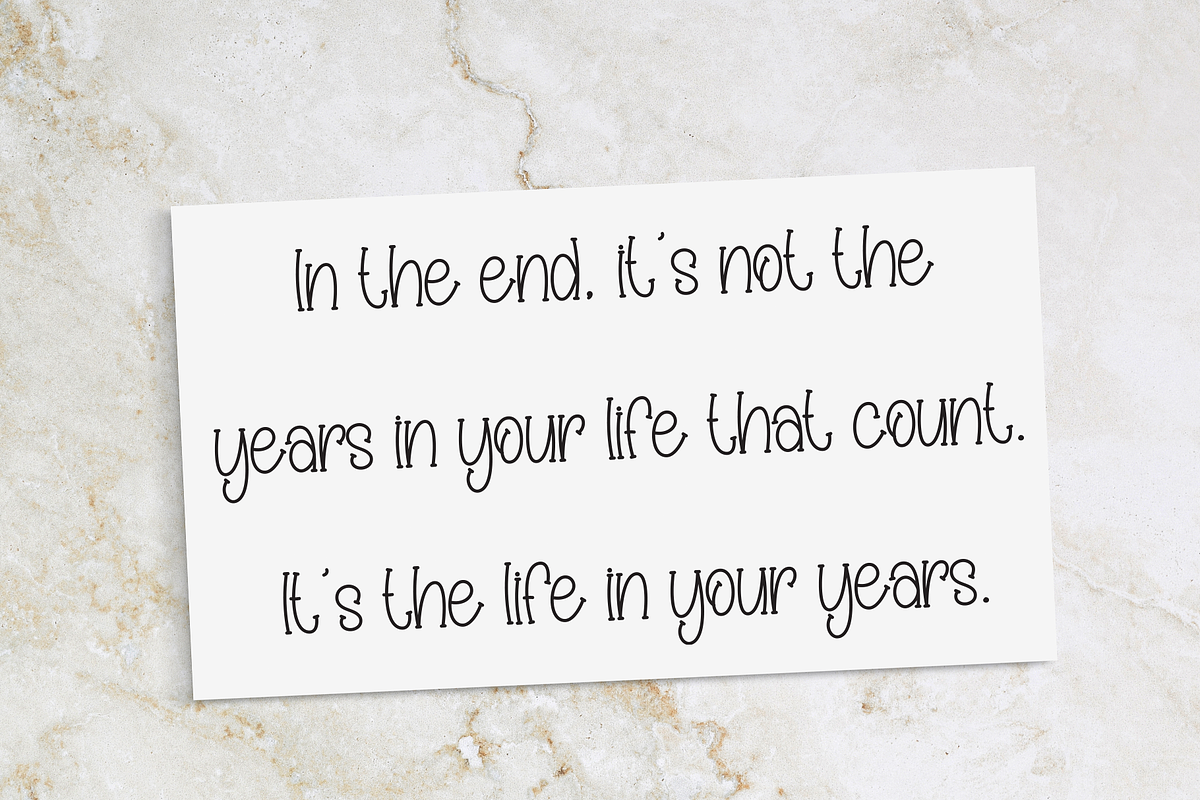 In the end, it's not the
years in your life that count.
It's the life in your years.